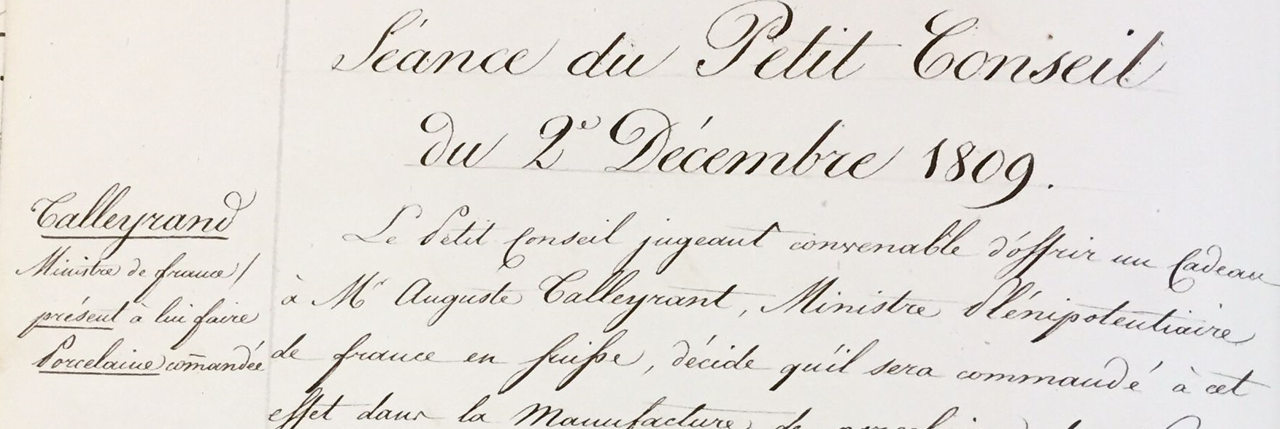 Séance du Petit Conseil
du 2e Décembre 1809.
Talleyrand
Ministre de france/
présent à lui faire
Porcelaine comandée
Le Petit Conseil jugeant convenable d'offrir un Cadeau
à Mr Auguste Talleyrant, Ministre Plénipotentiaire
de france en Suisse, décide qu'il sera commandé à cet
effet dans la Manufacture de